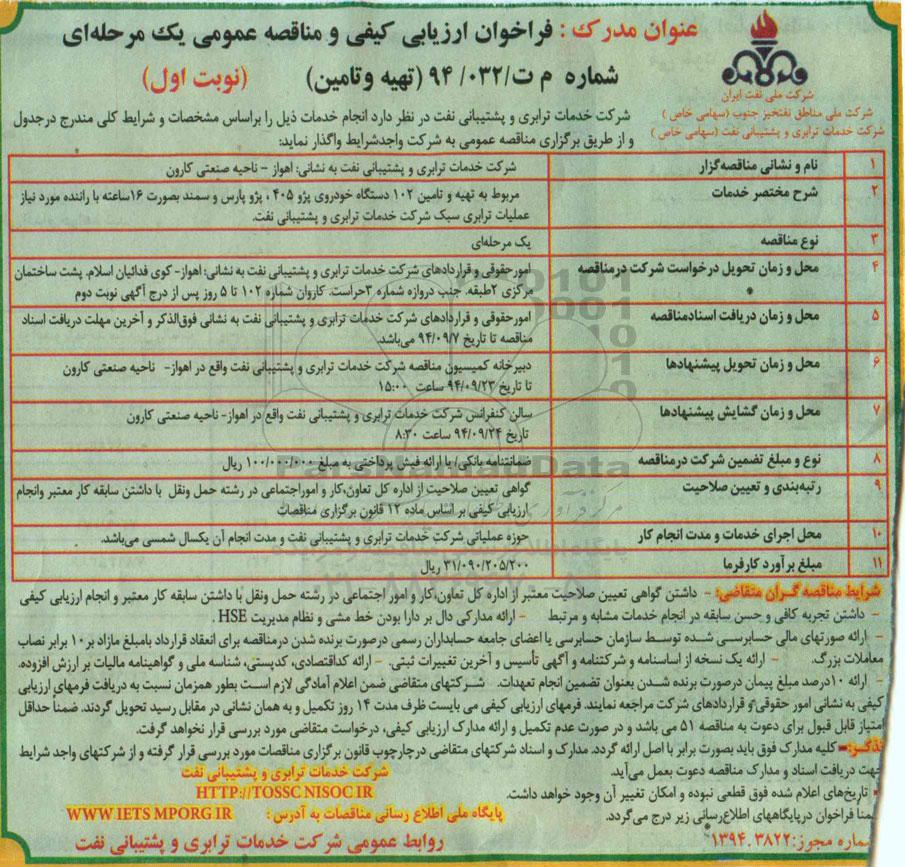 عنوان مدرک : فراخوان ارزیابی کیفی و مناقصه عمومی یک مرحله‌ای
شماره م ت/۰۳۲/ ۹۴ (تهیه وتامین) (نوبت اول)
شرکت ملی نفت ایران
شرکت ملی مناطق نفتخیز جنوب (سهامی خاص )
شرکت خدمات ترابری و پشتیبانی نفت (سهامی خاص )
شرکت خدمات ترابری و پشتیبانی نفت در نظر دارد انجام خدمات ذیل را براساس مشخصات و شرایط کلی مندرج درجدول
و از طریق برگزاری مناقصه عمومی به شرکت واجدشرایط واگذار نماید:
۱ نام و نشانی مناقصه‌گزار شرکت خدمات ترابری و پشتیبانی نفت به نشانی: اهواز – ناحیه صنعتی کارون
۲ شرح مختصر خدمات مربوط به تهیه و تامین ۱۰۲ دستگاه خودروی پژو ۴۰۵ ، پژو پارس و سمند بصورت ۱۶ساعته با راننده مورد نیاز
عملیات ترابری سبک شرکت خدمات ترابری و پشتیبانی نفت.
۳ نوع مناقصه یک مرحله‌ای
۴ محل و زمان تحویل درخواست شرکت درمناقصه امورحقوقی و قراردادهای شرکت خدمات ترابری و پشتیبانی نفت به نشانی: اهواز- کوی فدائیان اسلام. پشت ساختمان
مرکزی ۲طبقه. جنب دروازه شماره ۳حراست. کاروان شماره ۱۰۲ تا ۵ روز پس از درج آگهی نوبت دوم
۵ محل و زمان دریافت اسنادمناقصه امورحقوقی و قراردادهای شرکت خدمات ترابری و پشتیبانی نفت به نشانی فوق‌الذکر و آخرین مهلت دریافت اسناد
مناقصه تا تاریخ ۹۴/۰۹/۷ می‌باشد.
۶ محل و زمان تحویل پیشنهادها دبیرخانه کمیسیون مناقصه شرکت خدمات ترابری و پشتیبانی نفت واقع در اهواز- ناحیه صنعتی کارون
تا تاریخ ۹۴/۰۹/۲۳ ساعت ۱۵:۰۰
۷ محل و زمان گشایش پیشنهادها سالن کنفرانس شرکت خدمات ترابری و پشتیبانی نفت واقع در اهواز- ناحیه صنعتی کارون
تاریخ ۹۴/۰۹/۲۴ ساعت ۸:۳۰
۸ نوع و مبلغ تضمین شرکت درمناقصه ضمانتنامه بانکی/ یا ارائه فیش پرداختی به مبلغ ۱۰۰/۰۰۰/۰۰۰ ریال
۹ رتبه‌بندی و تعیین صلاحیت گواهی تعیین صلاحیت از اداره کل تعاون،کار و اموراجتماعی در رشته حمل ونقل با داشتن سابقه کار معتبر وانجام
ارزیابی کیفی بر اساس ماده ۱۲ قانون برگزاری مناقصات
۱۰ محل اجرای خدمات و مدت انجام کار حوزه عملیاتی شرکت خدمات ترابری و پشتیبانی نفت و مدت انجام آن یکسال شمسی می‌باشد.
۱۱ مبلغ برآورد کارفرما ۳۱/۰۹۰/۲۰۵/۲۰۰ ریال
شرایط مناقصه گران متقاضی: - داشتن گواهی تعیین صلاحیت معتبر از اداره کل تعاون،کار و امور اجتماعی در رشته حمل ونقل با داشتن سابقه کار معتبر و انجام ارزیابی کیفی
- داشتن تجربه کافی و حسن سابقه در انجام خدمات مشابه و مرتبط - ارائه مدارکی دال بر دارا بودن خط مشی و نظام مدیریت HSE .
- ارائه صورتهای مالی حسابرسی شده توسط سازمان حسابرسی یا اعضای جامعه حسابداران رسمی درصورت برنده شدن درمناقصه برای انعقاد قرارداد بامبلغ مازاد بر۱۰ برابر نصاب
معاملات بزرگ. - ارائه یک نسخه از اساسنامه و شرکتنامه و آگهی تأسیس و آخرین تغییرات ثبتی. - ارائه کداقتصادی، کدپستی، شناسه ملی و گواهینامه مالیات بر ارزش افزوده.
- ارائه ۱۰درصد مبلغ پیمان درصورت برنده شدن بعنوان تضمین انجام تعهدات. شرکتهای متقاضی ضمن اعلام آمادگی لازم است بطور همزمان نسبت به دریافت فرمهای ارزیابی
کیفی به نشانی امور حقوقی و قراردادهای شرکت مراجعه نمایند. فرمهای ارزیابی کیفی می بایست ظرف مدت ۱۴ روز تکمیل و به همان نشانی در مقابل رسید تحویل گردند. ضمناً حداقل
امتیاز قابل قبول برای دعوت به مناقصه ۵۱ می باشد و در صورت عدم تکمیل و ارائه مدارک ارزیابی کیفی، درخواست متقاضی مورد بررسی قرار نخواهد گرفت.
تذکر:- کلیه مدارک فوق باید بصورت برابر با اصل ارائه گردد. مدارک و اسناد شرکتهای متقاضی درچارچوب قانون برگزاری مناقصات مورد بررسی قرار گرفته و از شرکتهای واجد شرایط
جهت دریافت اسناد و مدارک مناقصه دعوت بعمل می‌آید.
تاریخ‌های اعلام شده فوق قطعی نبوده و امکان تغییر آن وجود خواهد داشت.
ضمنا فراخوان درپایگاههای اطلاع‌رسانی زیر درج می‌گردد.
شماره مجوز:۱۳۹۴.۳۸۲۲
شرکت خدمات ترابری و پشتیبانی نفت
HTTP://TOSSC.NISOC.IR
پایگاه ملی اطلاع رسانی مناقصات به آدرس : WWW.IETS.MPORG.IR
روابط عمومی شرکت خدمات ترابری و پشتیبانی نفت